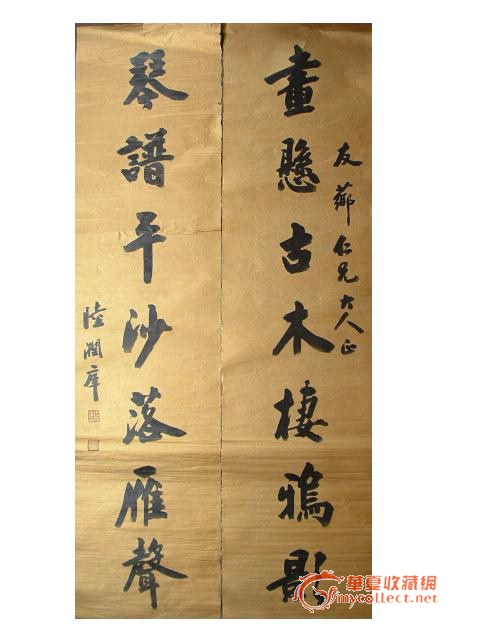 畫懸古木棲鴉影
友薌仁兄大人正
琴譜平沙落雁聲
陸潤庠
華夏收藏網
mycollect.net